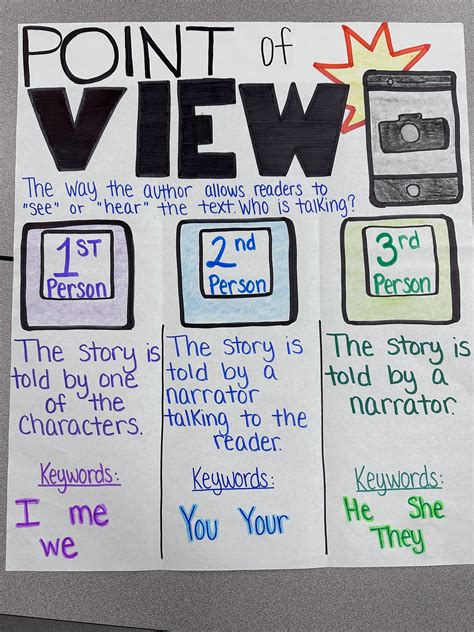 POINT of
VIEW
The way the author allows readers to
"see" or "hear" the text. Who is talking?
1ST
Person
The story is
told by one
of the
Characters.
Keywords:
I me
we
2nd
Person
The story is
told by a
narrator
talking to the
reader.
Keywords:
You Your
3rd
Person
The story is
told by a
narrator.
Keywords:
He She
They